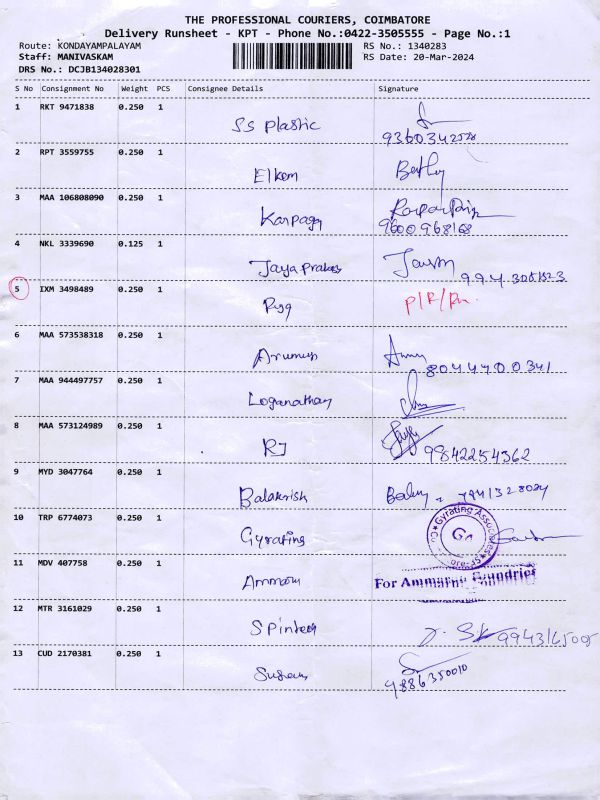 THE PROFESSIONAL COURIERS, COIMBATORE
Delivery Runsheet - KPT - Phone No.:0422-3505555 - Page No.:1
Route: KONDAYAMPALAYAM
RS No.: 1340283
Staff: MANIVASKAM
RS Date: 20-Mar-2024
DRS No.: DCJB134028301
S No Consignment No Weight PCS Consignee Details Signature
1 RKT 9471838 0.250 1
SS plastic
2 RPT 3559755 0.250 1
Elkem
3 MAA 106808090 0.250 1
Karpaga
9600968168
4 NKL 3339690 0.125 1
Jaya Prakas
5 IXM 3498489 0.250 1
6 MAA 573538318 0.250 1
Arumug
8044700341
7 MAA 944497757 0.250 1
Loganathan
8 MAA 573124989 0.250 1
RJ
9842254362
9 MYD 3047764 0.250 1
Balakrish
10 TRP 6774073 0.250 1
Gyrating
Gyrating Associates
GA
11 MDV 407758 0.250 1
Ammam
For Ammarun Foundries
12 MTR 3161029 0.250 1
13 CUD 2170381 0.250 1
9886350010